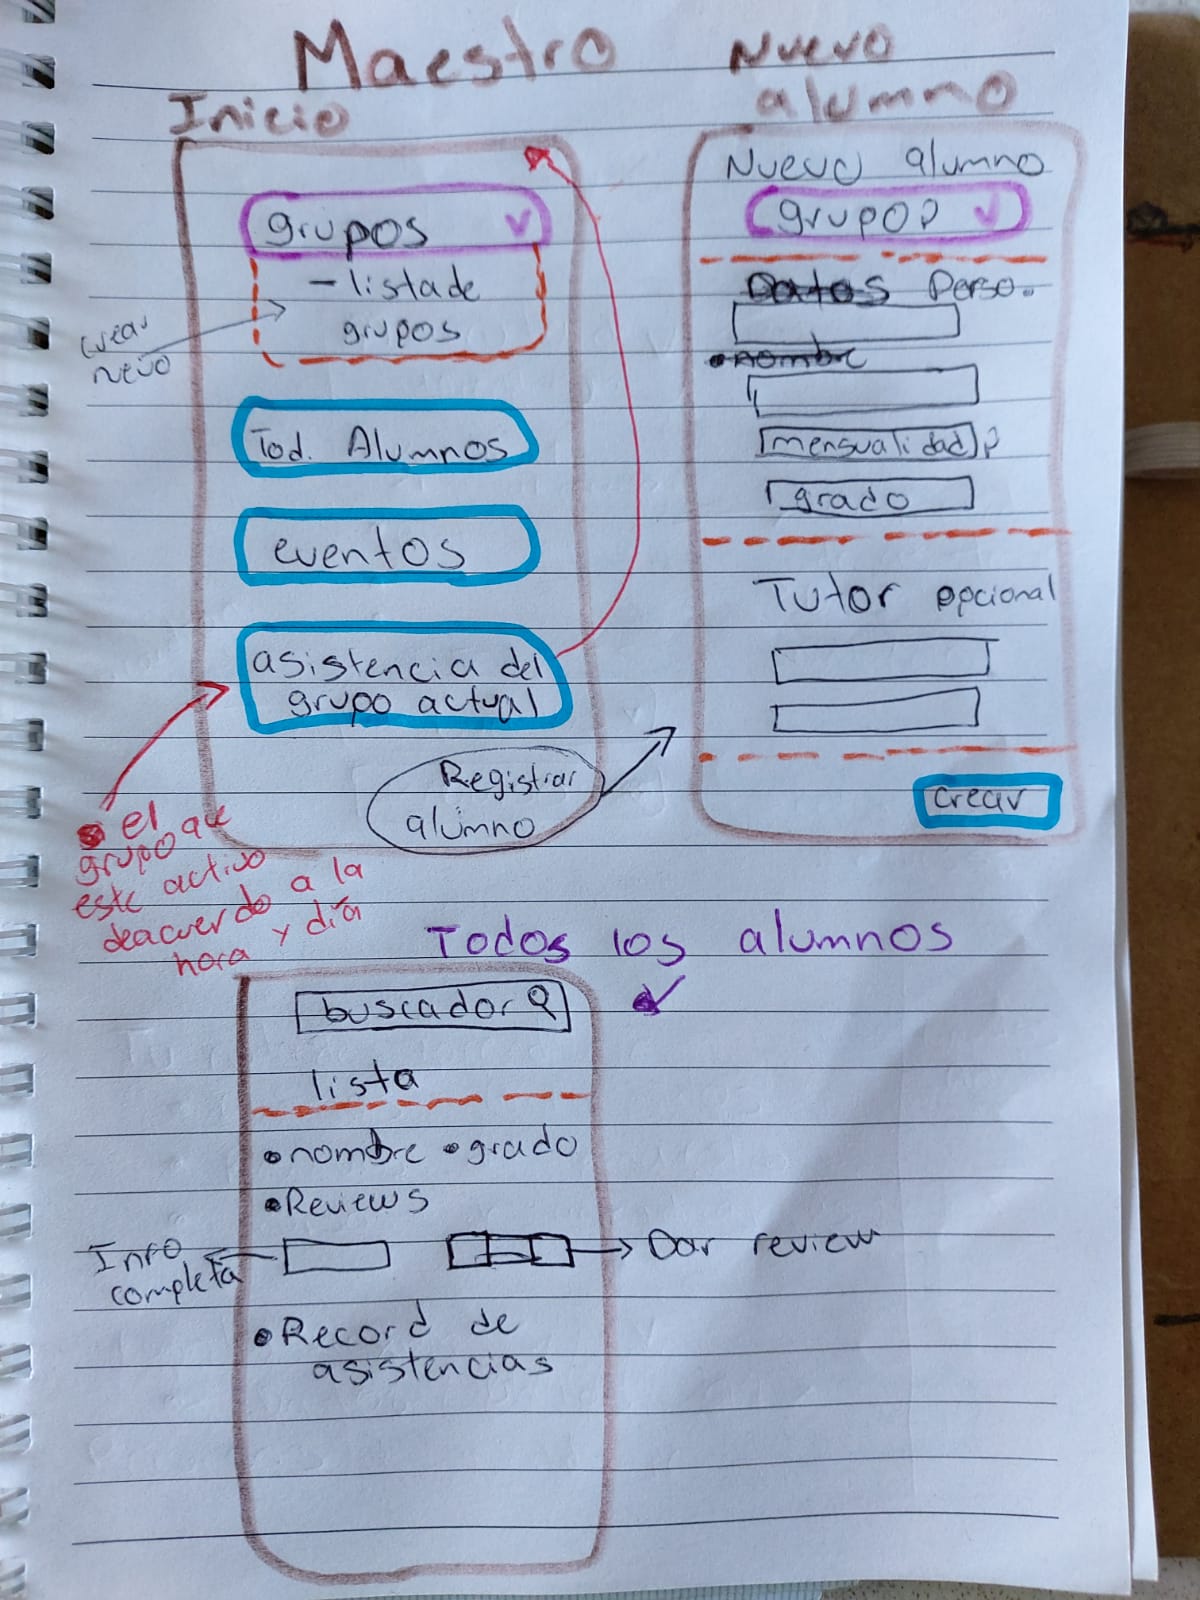 Maestro
Inicio
grupos
- lista de
grupos
crear
nevo
Tod. Alumnos
eventos
asistencia del
grupo actual
Registrar
alumno
el
grupo que
este activo
deacuerdo a la
hora y día
Nuevo
alumno
Nuevo alumno
grupo?
Datos Perso.
nombre
mensualidad?
grado
Tutor opcional
crear
Todos los alumnos
buscador
lista
• nombre • grado
• Reviews
Info
completa
Dar review
• Record de
asistencias